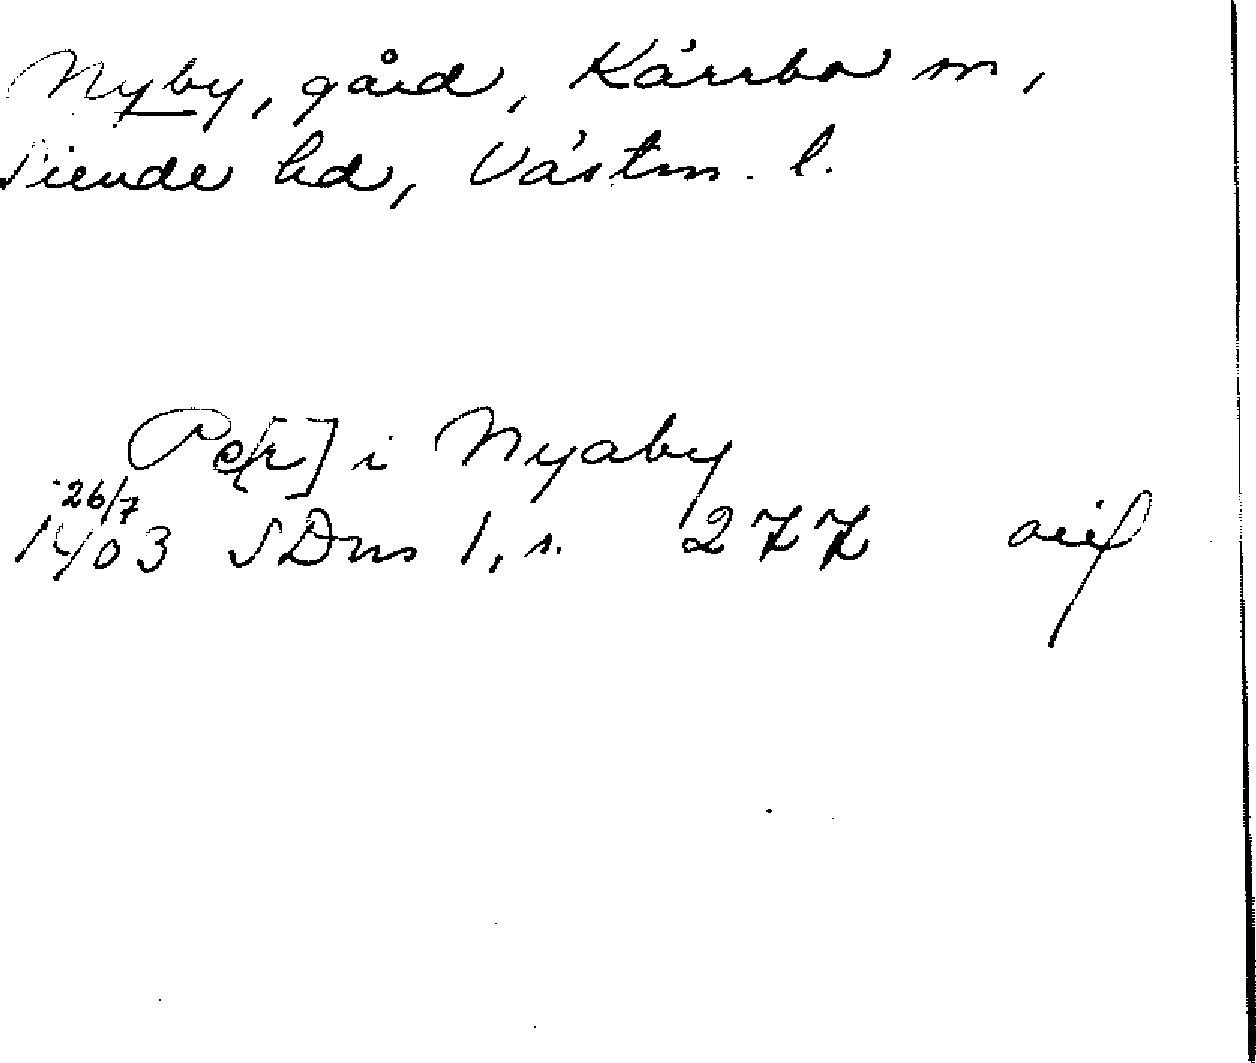 Nyby, gård, Kärrbo sn,
Siende hd, Västm. l.
Pe[r] i Nyaby
26/7
1403 SDns 1, s. 277 avif